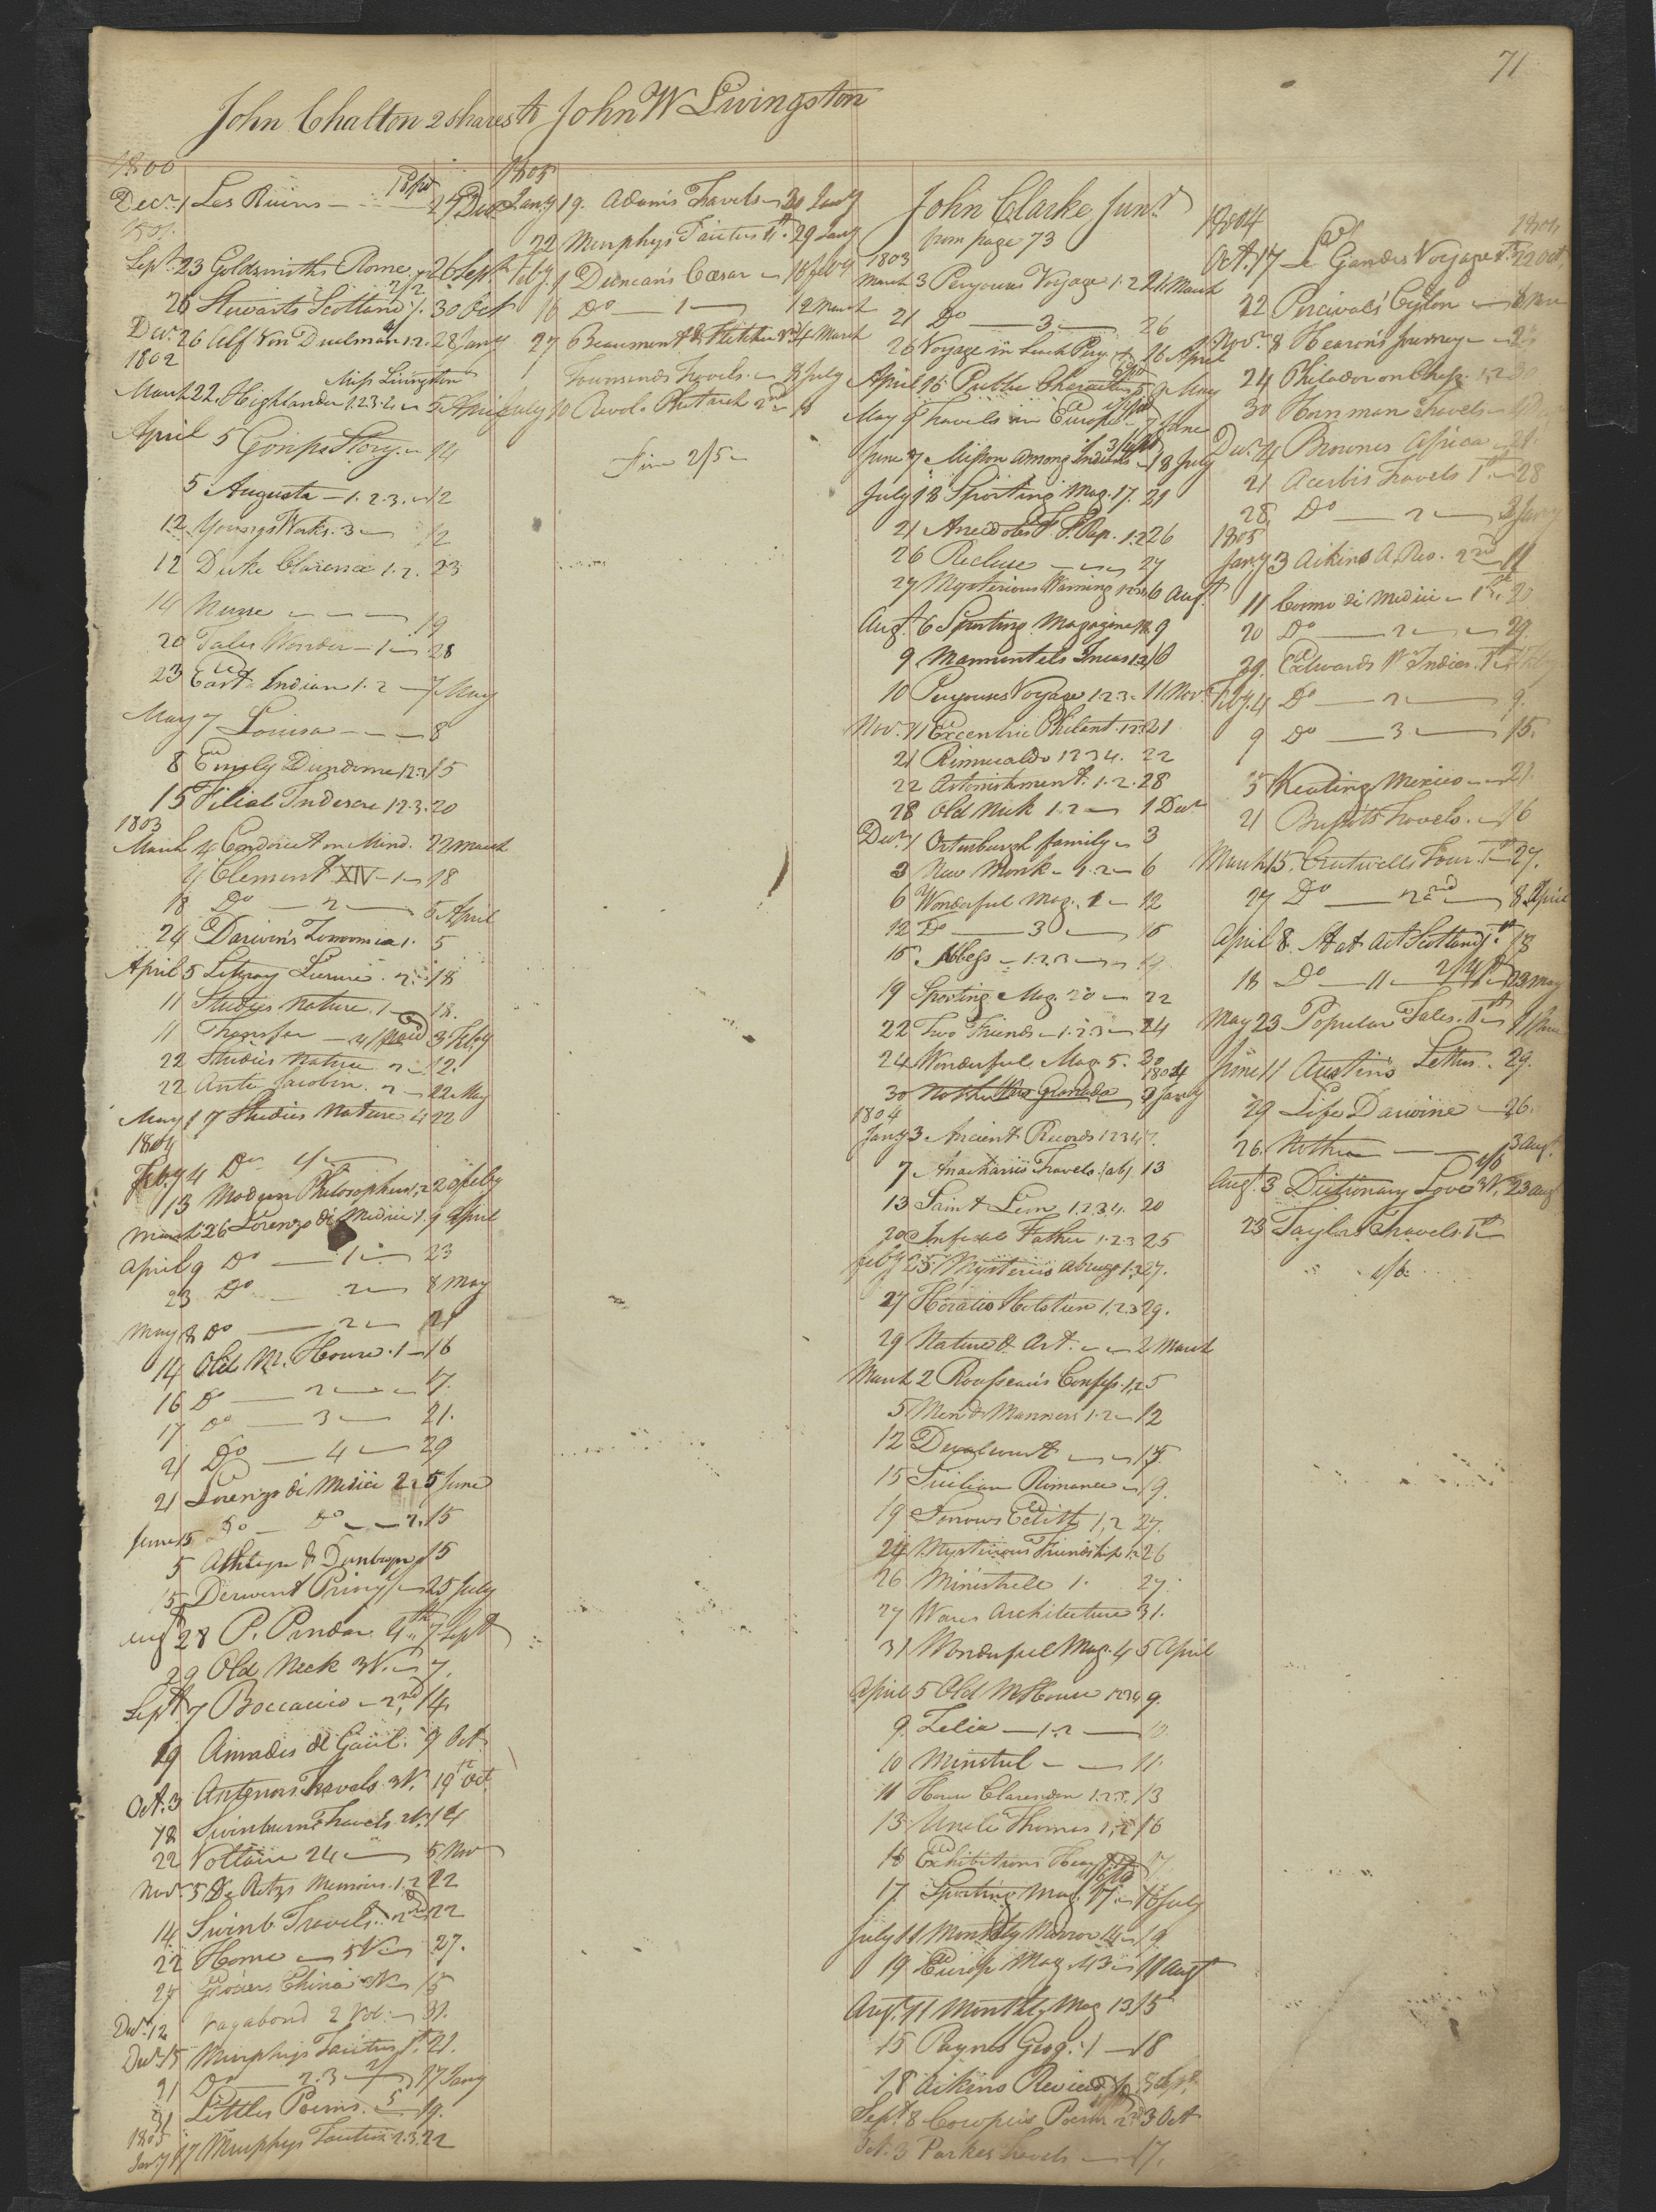 71
John Chalton 2 shares to John W Livingston
1800
Decr. 1 Les Ruins 24 Decr
Sept. 23 Goldsmiths Rome 26 Sept
26 Stewarts Scotland 1. 30 Oct
Decr. 26 Alf Von Duelman 1.2. 28 Jany
1802
Miss Livingston
March 22. Highlander 1.2.3.4 5 April
April 5 Gossips Story 14
5 Augusta 1.2.3. 12
12 Youngs Works. 3 12
12 Duke Clarence 1.2. 23
14 Nurse 19
20 Tales Wonder 1 28
23 East Indian 1.2 7 May
May 7 Louisa 8
8 Emily Dundorne 1.2.3 15
15 Filial Indiscre 1.2.3. 20
1803
March 4 Condorcet on Mind. 22 March
4 Clement XIV 1 18
18 Do 2 5 April
24 Darwin's Zoonomia 1. 5
April 5 Literary Leisure. 2 18
11 Studies Nature. 1 18.
11 Transfer paid 3 Feby
22 Studies Nature 2 12.
22 Anti Jacobin. 2 22 May
May 17 Studies Nature 4 22
1804
Feby 4 Do
13 Modern Philosophers 1,2 20 feby
March 26 Lorenzo di Medici 1. 9 April
April 9 Do 1 23
23 Do 2 8 May
May 8 Do 2 21
14 Old M. House. 1 16
16 Do 2 17.
17 Do 3 21.
21 Do 4 29
21 Lorenzo di Medici 2 5 June
June 5 Do Do 2. 15
5 Athlyn & Dunbayne 15
15 Derwent Priory 25 July
Augt 28 P. Pindar. 4th 7 Sept
29 Old Nick 3V. 7.
Sept. 7 Boccaccio 2nd 14
29 Amadis de Gaul. 9 Oct
Oct. 3 Antenors Travels 3V. 19 Oct.
Swinburnes Travels
22 Voltaire 24 5 Nov
Nov. 5 De Retz's Memoirs. 1.2 22
14 Swinb. Travels. 2nd 22
22 Home 5V 27.
27 Grosiers China 15
Decr. 12 Vagabond 2 Vol. 31.
Decr. 15 Murphys Tacitus 1st. 21.
21 Do 2.3 17 Jany
31 Littles Poems. 19.
1805
Jany 17 Murphys Tacitus 2.3. 22
1805
Jany 19. Adams Travels 30 Jany
22 Murphys Tacitus 4th. 29 Jany
Feby. 1 Duncan's Cæsar 18 feby
16 Do 1 12 March
27 Beaumont & Fletcher 4 March
1 Townsends Travels. 8 July
July 10 Revol. Plutarch 2nd
Fine 2/5
John Clarke Junr.
from page 73
1803
March 3 Perouses Voyage 1.2 21 March
21 Do 3. 26
26 Voyage in Search Perou. 16 April
April 16 Public Characters 9 May
May 9 Travels in Europe 7 June
June 7 Mission among Indians 18 July
July 18 Sporting Mag. 17. 21
21 Anecdotes F. Rep. 1.2 26
26 Recluse 27
27 Mysterious Warning 1234 6 Augt
Augt. 6 Sporting Magazine 18. 9
9 Marmontels Incas 1.2 16
10 Perouses Voyage 1.2.3. 11 Novr
Nov. 11 Excentric Philant. 1.2.3 21
21 Rimualdo 1 2 3 4. 22
22 Astonishment. 1.2. 28
28 Old Nick 1.2 1 Decr
Decr. 1 Ortenburgh family 3
3 New Monk. 1.2 6
6 Wonderful Mag. 1 12
12 Do 3 15
15. Abbess 1.2.3 19
19 Sporting Mag. 20 22
22 Two Friends 1.2.3 24
24 Wonderful Mag. 5. 30
1804
30 3 Jany
1804
Jany 3 Ancient Records 1 2 3 4 7.
7 Anacharsis Travels (ab) 13
13 Saint Leon 1.2.3.4. 20
20 Infidel Father 1.2.3 25
feby 25. Mysteries Abruzzo 1.2 27.
27 Horatio Holstein 1.2.3 29.
29 Nature & Art. 2 March
March 2 Rousseau's Confess. 1,2 5
5 Men & Manners 1.2 12
12 Devalcourt 15
15 Sicilian Romance 19.
19 Sorrows Edith 1,2 27.
24 Mysterious Friendship 1.2 26
26 Ministrele 1. 27.
27 Wares Architecture 31.
31 Wonderful Mag. 4 5 April
April 5 Old M House 1234 9.
9. Zelia 1.2 10
10 Minstrel 11.
11 House Clarendon 1.2.3. 13
13 Uncle Thomas 1,2 16
16 Exhibitions Heart 17
17 Sporting Mag. 17. 18 July
July 11 Monthly Mirror 14 19
19 Europ Mag. 43 11 Augt
Augt. 11 Monthly Mag 13 15
15 Paynes Geog. 1 18
18 Aikins Review Sept.
Sept. 8 Cowpers Poems 2nd 3 Oct
Oct. 3 Parkes Travels 17.
1804
Oct. 17 Le Gandes Voyage 1st. 22 Oct.
22 Percivals Ceylon Nov
Novr. 8 Hearn's Journey 24
24 Philador on Chess. 1,2 30
30 Hornman Travels
Decr. 4 Brownes Africa 21.
21 Acerbis Travels 1st. 28
28. Do 2 3 Jany
1805
Jany 3 Aikins A. Rev. 2nd 11
11 Cosmo di Medici 1st. 20
20 Do 2 29.
29. Edwards W Indies. 1st 4 Feby
Feby. 4 Do 2 9.
9 Do 3 15.
15 Keating Mexico 21.
21 Travels. 16
March 15. Crutwells Tour. 1st 27.
27 Do 2nd 8 April
April 8. Stat Act Scotland 1st. 18
18 Do 11 23 May
May 23 Popular Tales. 1st 11 June
June 11 Austins Letters. 29.
29 Life Darwine 26.
26. Nothin 3 Augt.
Augt. 3 Dictionary Love 3V. 23 Aug
23 Taylors Travels. 1st